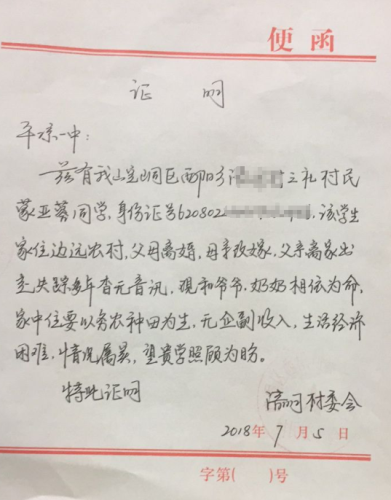 便函
证明
平凉一中：
兹有我崆峒区西阳乡 三礼村民
蒙亚蓉同学，身份证号620802 ，该学生
家住边远农村，父母离婚，母亲改嫁，父亲离家出
走失踪多年杳无音讯，现和爷爷、奶奶相依为命，
家中位要以务农种田为生，无企副收入，生活经济
困难，情况属实，望贵学照顾为盼。
特此证明
村委会
2018年7月5日
字第( )号